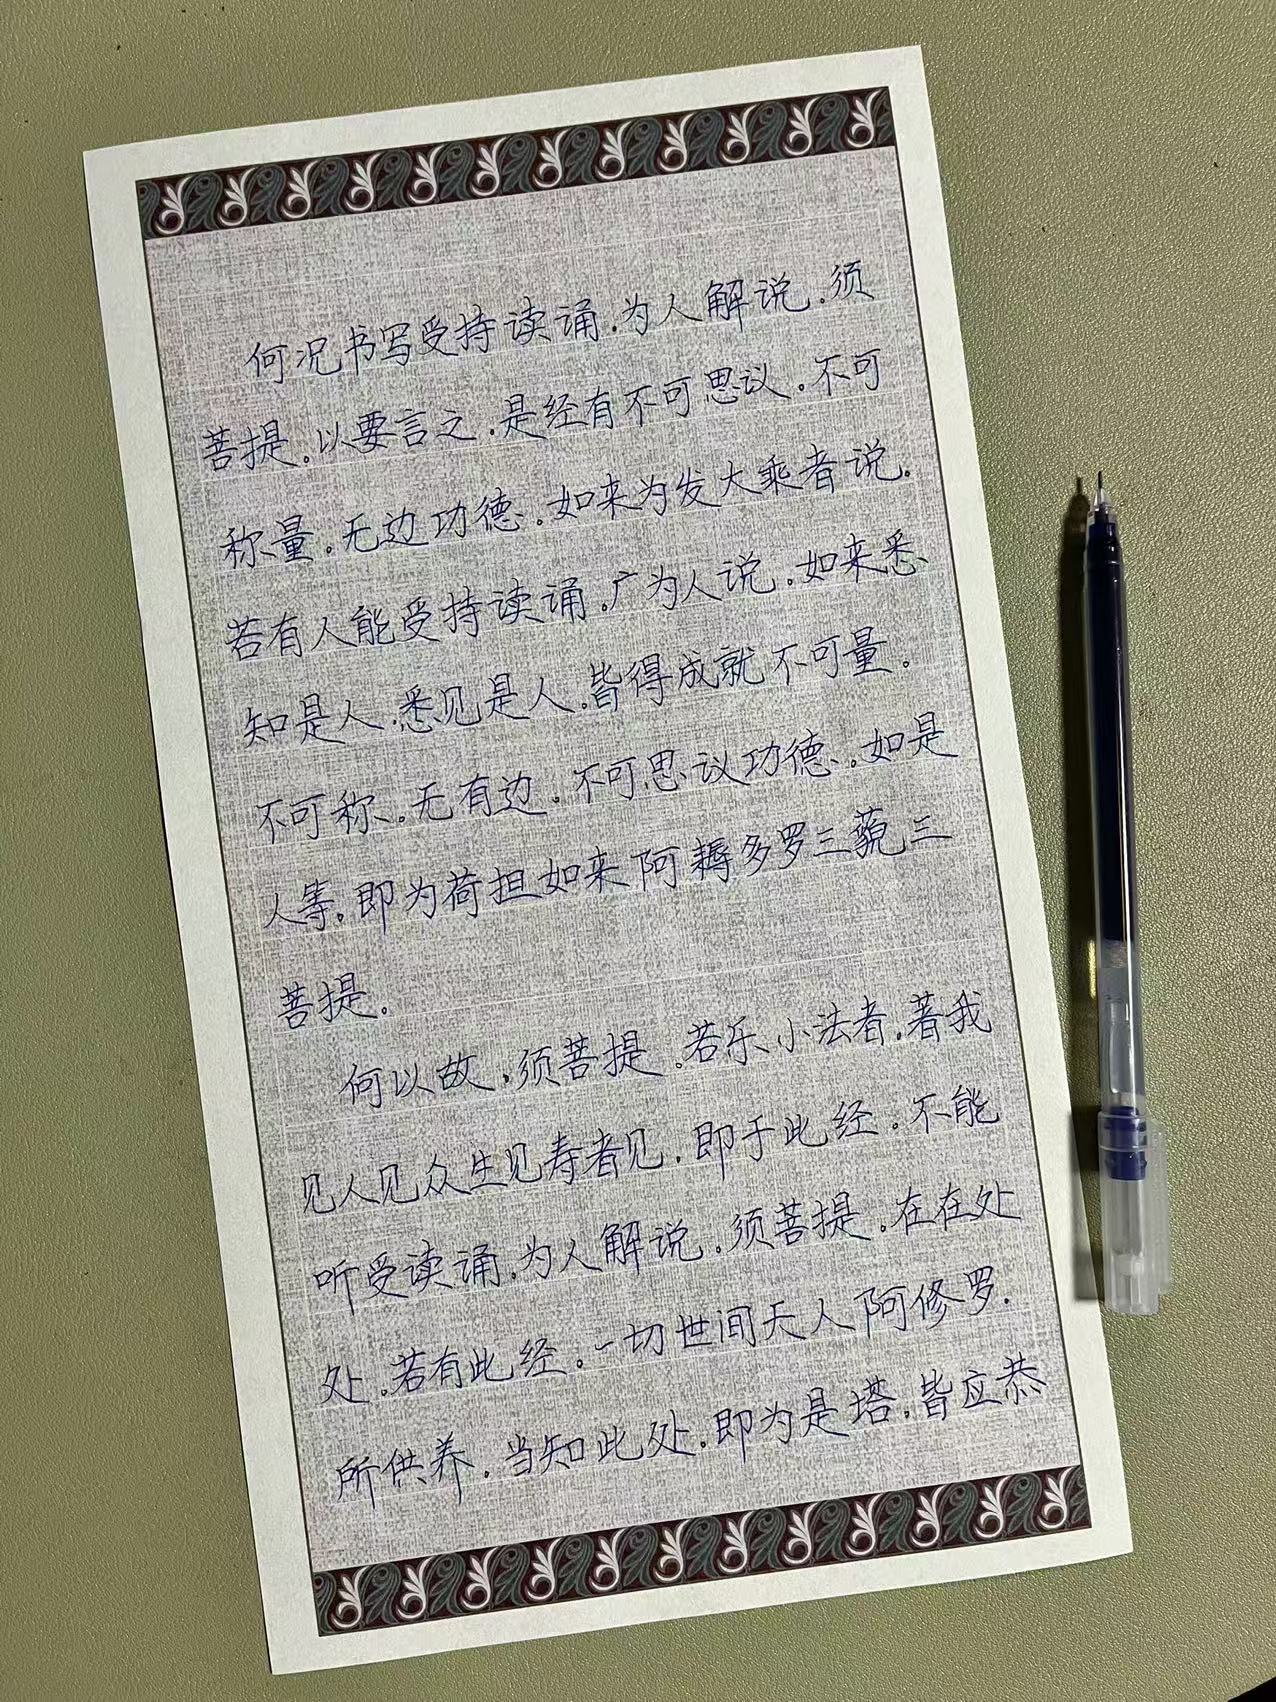 何况书写受持读诵.为人解说.须
菩提。以要言之.是经有不可思议。不可
称量。无边功德。如来为发大乘者说。
若有人能受持读诵.广为人说.如来悉
知是人.悉见是人.皆得成就不可量。
不可称。无有边。不可思议功德。如是
人等。即为荷担如来阿耨多罗三藐三
菩提。
何以故.须菩提.若乐小法者.著我
见人见众生见寿者见.即于此经。不能
听受读诵.为人解说.须菩提.在在处
处.若有此经。一切世间天人阿修罗.
所供养.当知此处.即为是塔.皆应恭